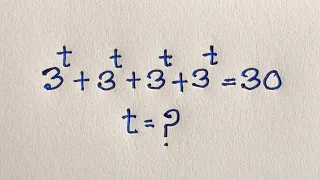 3^t + 3^t + 3^t + 3^t = 30
t = ?